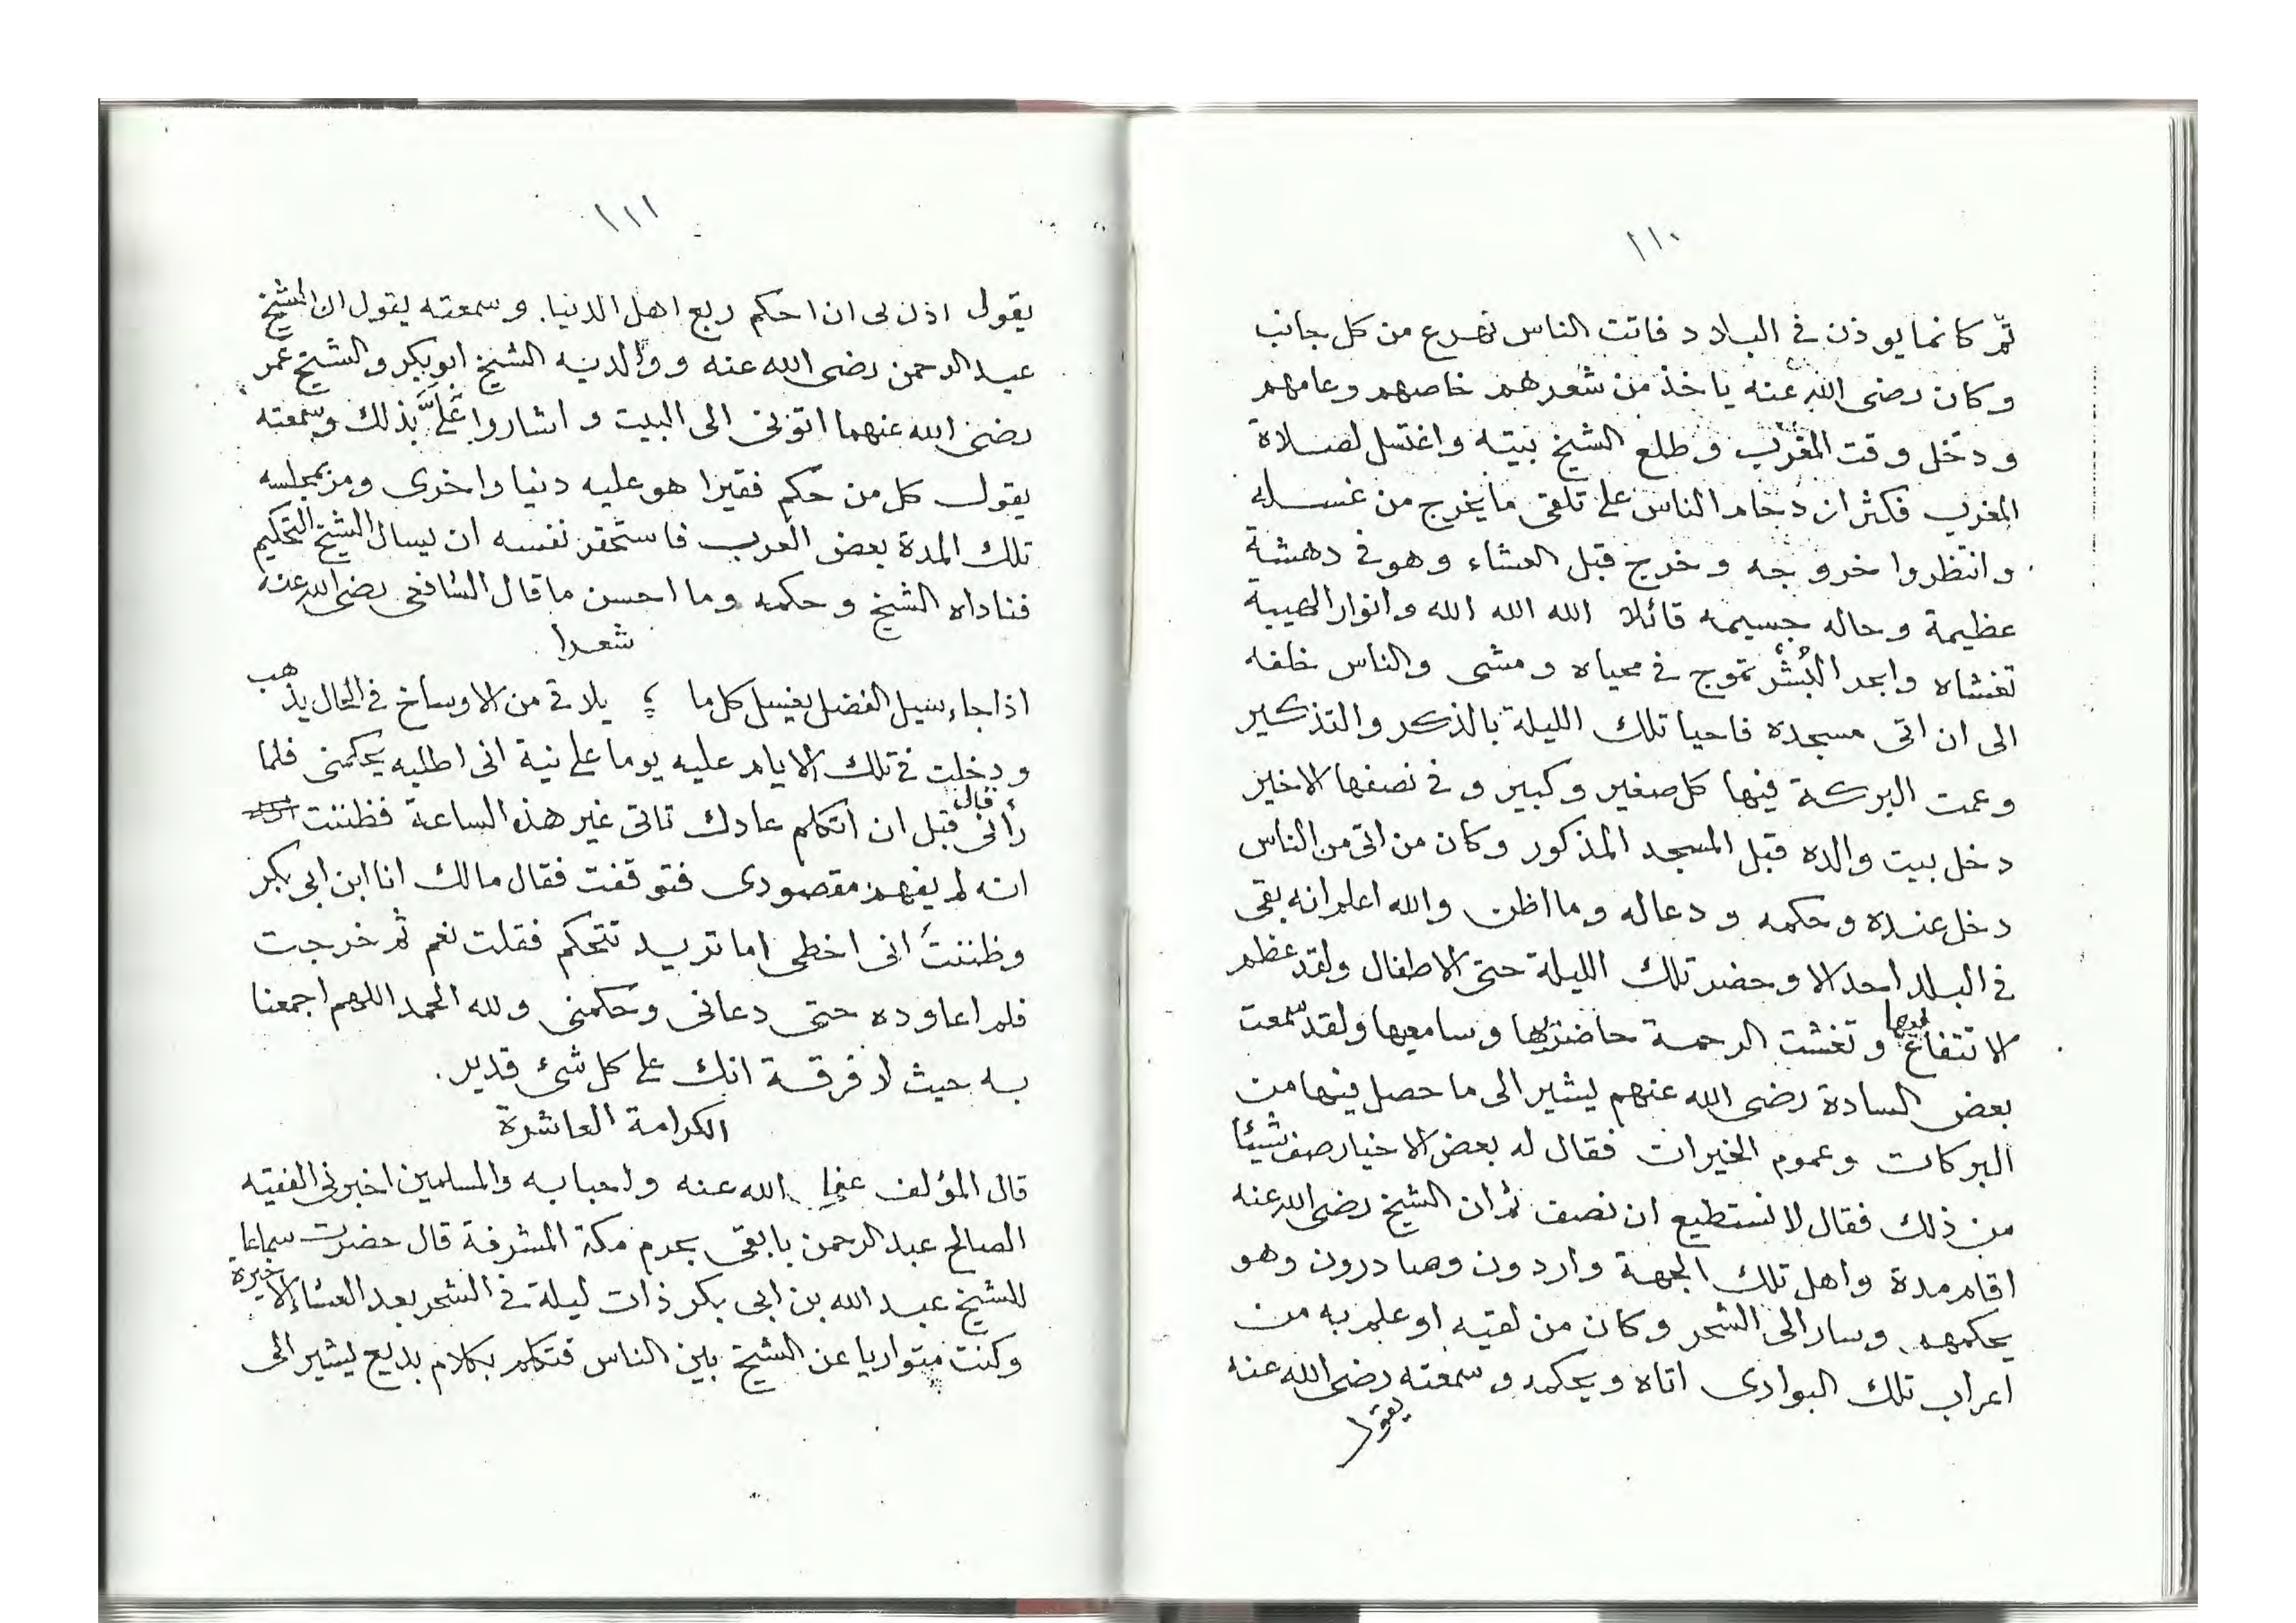 ١١٠
ثم كانما يوذن في البلاد فاتت الناس تهرع من كل جانب
وكان رضى الله عنه ياخذ من شعرهم خاصهم وعامهم
ودخل وقت المغرب وطلع الشيخ بيته واغتسل لصلاة
المغرب فكثر ازدحام الناس على تلقى ما يخرج من غسله
وانتظروا خروجه وخرج قبل العشاء وهو في دهشة
عظيمة وحاله جسيمه قائلا الله الله الله وانوار الهيبة
تغشاه وابحر البُشْر تموج في محياه ومشى والناس خلفه
الى ان اتى مسجده فاحيا تلك الليلة بالذكر والتذكير
وعمت البركة فيها كل صغير وكبير وفي نصفها الاخير
دخل بيت والده قبل المسجد المذكور وكان من اتى من الناس
دخل عنده وحكمه ودعاله وما اظن والله اعلم انه بقى
في البلد احد الا وحضر تلك الليلة حتى الاطفال ولقد عظم
الانتفاع وتغشت الرحمة حاضريها وسامعيها ولقد سمعت
بعض السادة رضى الله عنهم يشير الى ما حصل فيها من
البركات وعموم الخيرات فقال له بعض الاخيار صف شيئا
من ذلك فقال لا نستطيع ان نصف ثم ان الشيخ رضى الله عنه
اقام مدة واهل تلك الجهة واردون وصادرون وهو
يحكمهم وسار الى الشحر وكان من لقيه او علم به من
اعراب تلك البوادى اتاه ويحكمه وسمعته رضى الله عنه
يقول
١١١
يقول اذن لى ان احكم ربع اهل الدنيا. وسمعته يقول ان الشيخ
عبد الرحمن رضى الله عنه ووالديه الشيخ ابو بكر والشيخ عمر
رضى الله عنهما اتونى الى البيت واشاروا عَلَيَّ بذلك وسمعته
يقول كل من حكم فقيرا هو عليه دنيا واخرى ومر بمجلسه
تلك المدة بعض العرب فاستحقر نفسه ان يسال الشيخ التحكيم
فناداه الشيخ وحكمه وما احسن ما قال الشافعى رضى الله عنه
شعرا
اذا جاء سيل الفضل يغسل كل ما ؛ يلاقى من الاوساخ في الحال يذهب
ودخلت في تلك الايام عليه يوما على نية انى اطلبه يحكمنى فلما
رأنى قال قبل ان اتكلم عادك تاتى غير هذه الساعة فظننت
انه لم يفهم مقصودى فتوقفت فقال مالك انا ابن ابى بكر
وظننتَ انى اخطى اما تريد تتحكم فقلت نعم ثم خرجت
فلم اعاوده حتى دعانى وحكمنى ولله الحمد اللهم اجمعنا
به حيث لا فرقة انك على كل شئ قدير.
الكرامة العاشرة
قال المؤلف عفا الله عنه واحبابه والمسلمين اخبرنى الفقيه
الصالح عبد الرحمن بابقى بحرم مكة المشرفة قال حضرت سماعا
للشيخ عبد الله بن ابى بكر ذات ليلة في الشحر بعد العشاء الاخيرة
وكنت متواريا عن الشيخ بين الناس فتكلم بكلام بديع يشير الى